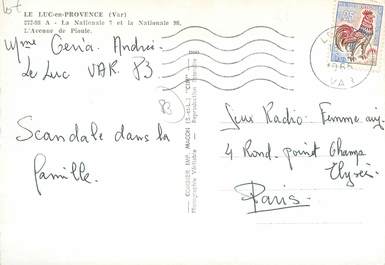 LE LUC-en-PROVENCE (Var)
La Nationale 7 et la Nationale 98,
L'Avenue de Pioule.
Mme Geria. Andrée
Le Luc VAR. 83
83
Scandale dans la
famille.
COMBIER IMP. MACON (S.-et-L.) "CIM"
Photographie Véritable - Reproduction interdite
1965
VAR
Jeu Radio. Femme
4 Rond. point Champs
Elysées.
Paris.